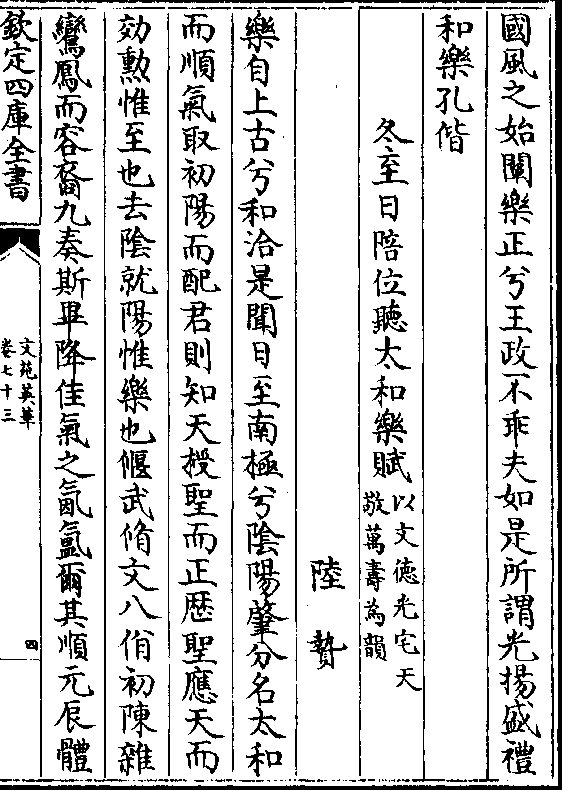 國風之始闡樂正兮王政不乖夫如是所謂光揚盛禮
和樂孔偕
冬至日陪位聽太和樂賦
以文德光宅天
敬萬壽為韻
陸贄
樂自上古兮和洽是聞日至南極兮陰陽肇分名太和
而順氣取初陽而配君則知天授聖而正歴聖應天而
効勲惟至也去陰就陽惟樂也偃武脩文八佾初陳雜
鸞鳳而容裔九奏斯畢降佳氣之氤氲爾其順元辰體
欽定四庫全書
文苑英華
卷七十三
四